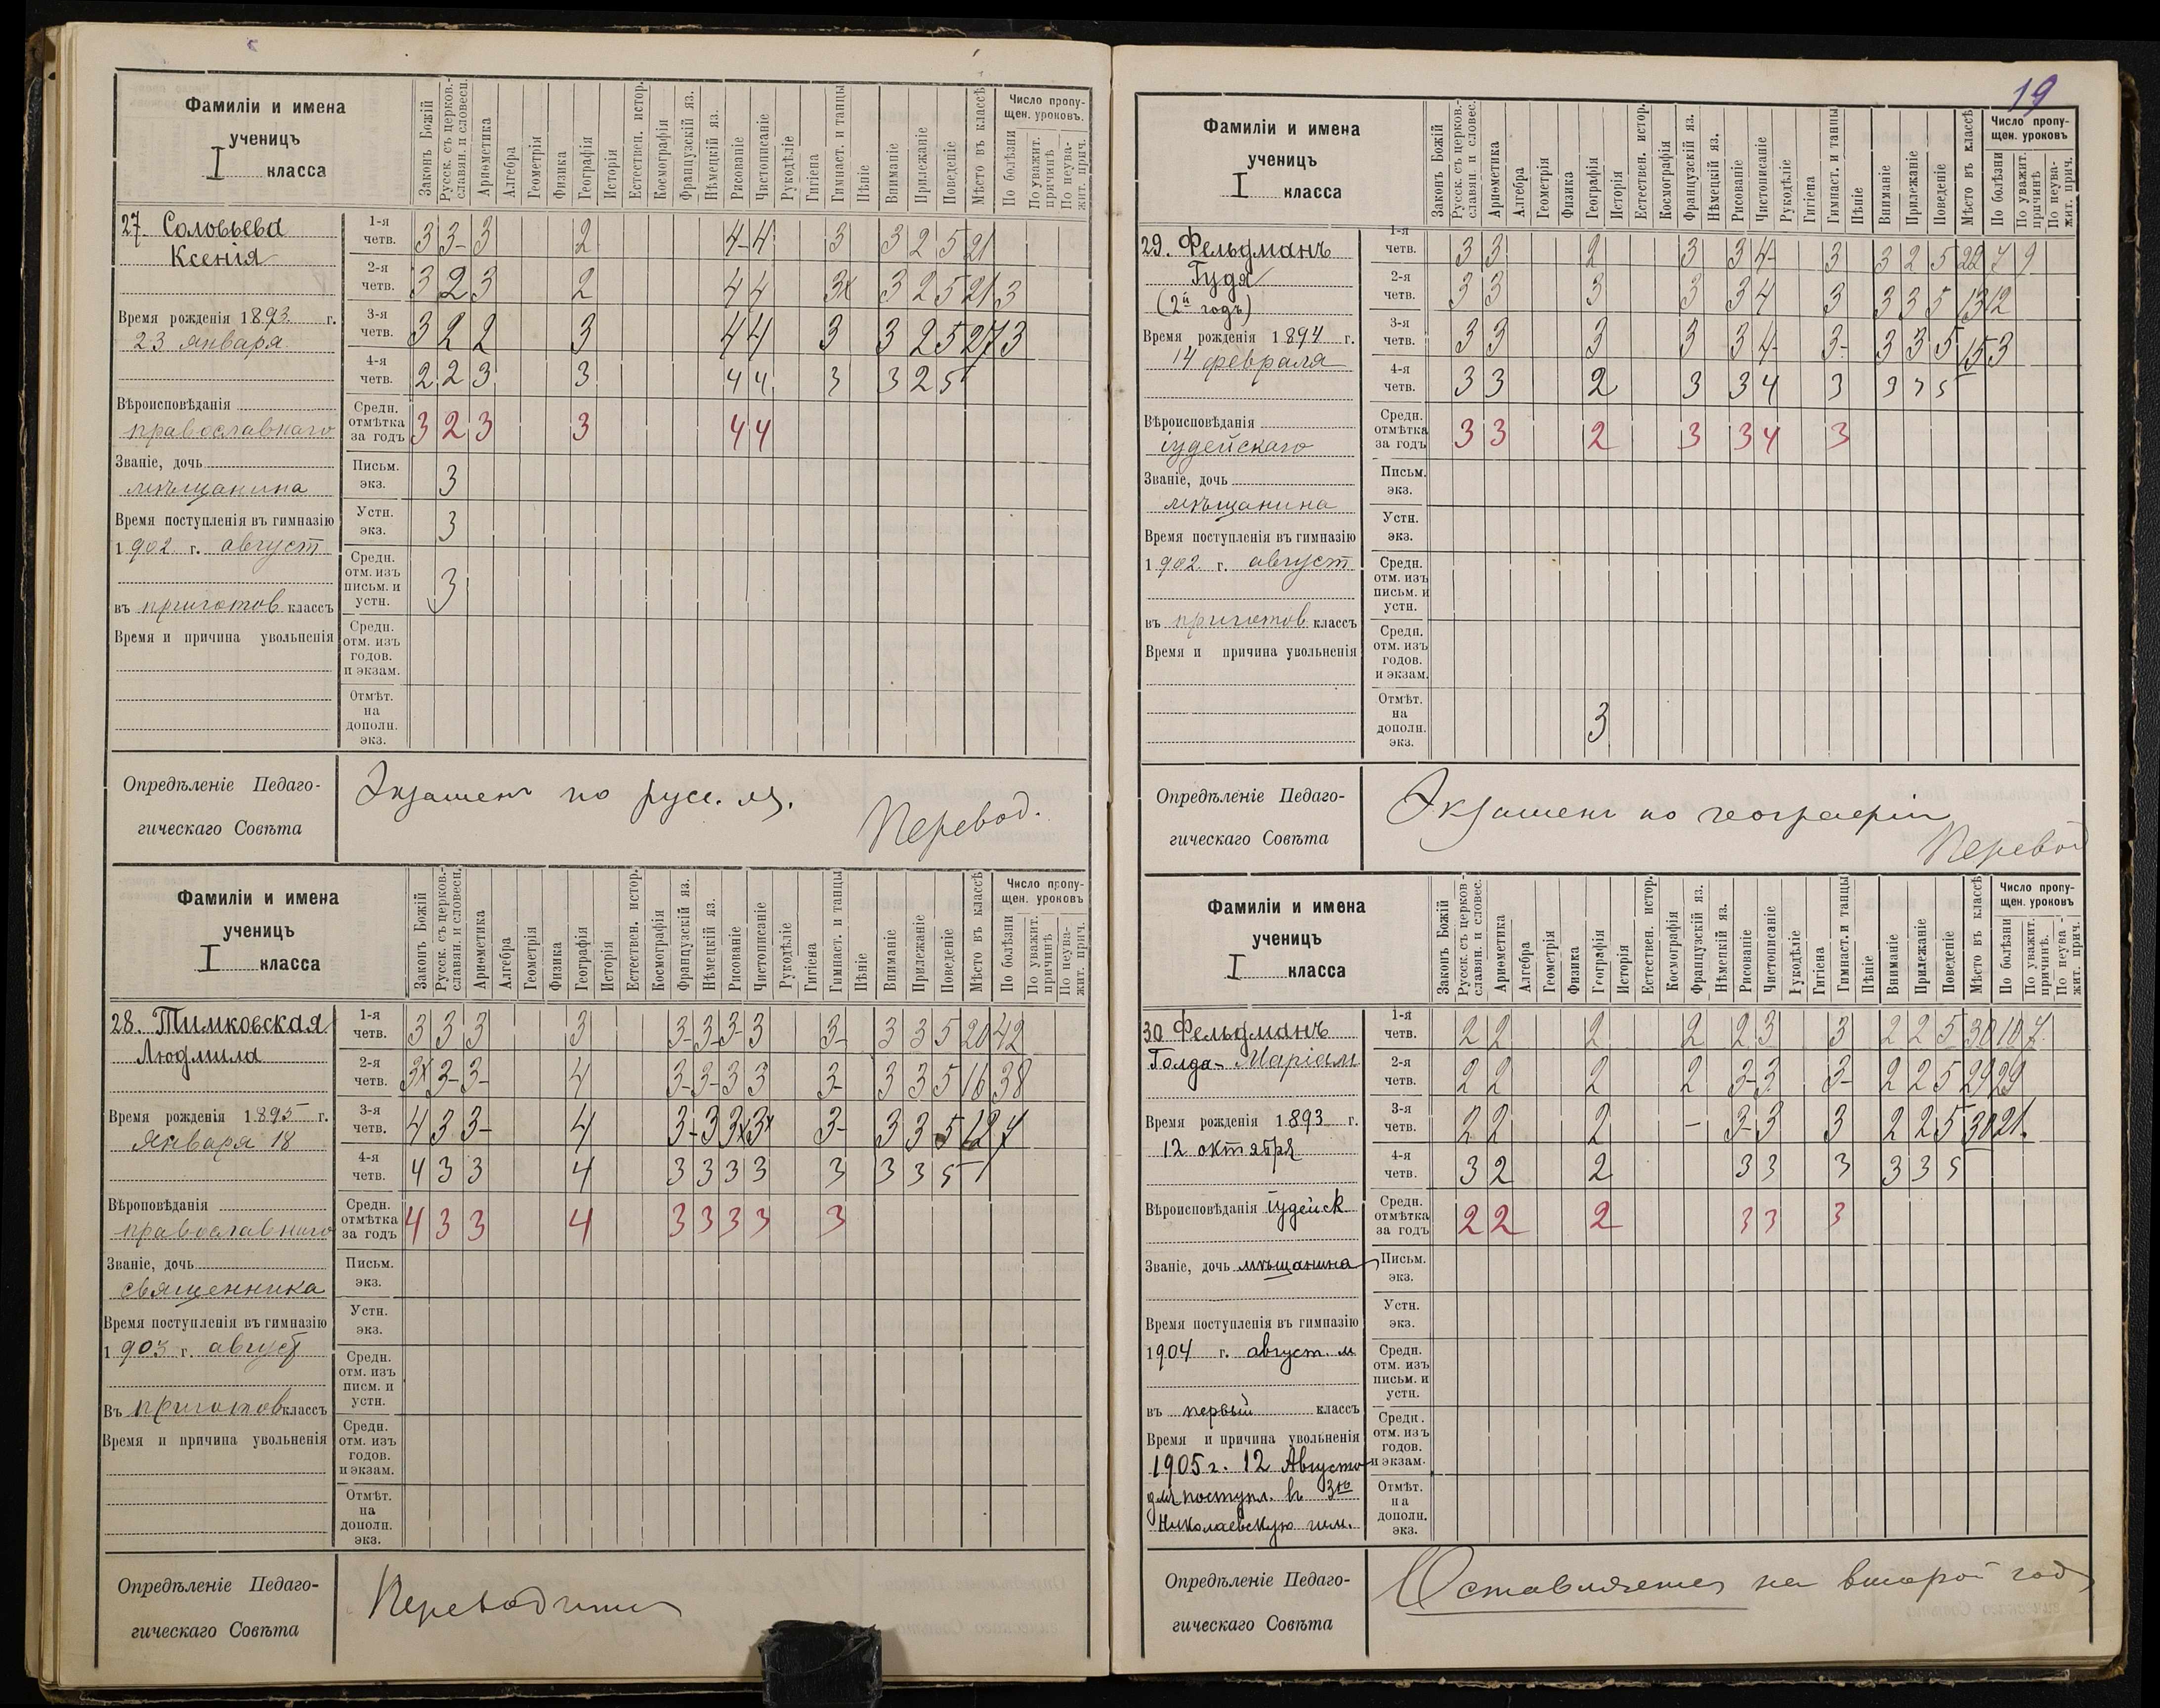 19
Фамиліи и имена
ученицъ
I класса
Законъ Божій
Русск. съ церков.-
славян. и словесн.
Ариѳметика
Алгебра
Геометрія
Физика
Географія
Исторія
Естествен. истор.
Космографія
Французскій яз.
Нѣмецкій яз.
Рисованіе
Чистописаніе
Рукодѣліе
Гигіена
Гимнаст. и танцы
Пѣніе
Вниманіе
Прилежаніе
Поведеніе
Мѣсто въ классѣ
Число пропу-
щен. уроковъ.
По болѣзни
По уважит.
причинѣ
По неува-
жит. прич.
27. Соловьева
Ксенія
Время рожденія 1893 г.
23 января
Вѣроисповѣданія
православнаго
Званіе, дочь
мѣщанина
Время поступленія въ гимназію
1902 г. август
въ приготов. классъ
Время и причина увольненія
1-я четв. 3 3- 3 2 4- 4 3 3 2 5 21
2-я четв. 3 2 3 2 4 4 3х 3 2 5 21 3
3-я четв. 3 2 2 3 4 4 3 3 2 5 27 3
4-я четв. 2 2 3 3 4 4 3 3 2 5
Средн. отмѣтка за годъ 3 2 3 3 4 4
Письм. экз. 3
Устн. экз. 3
Средн. отм. изъ письм. и устн. 3
Средн. отм. изъ годов. и экзам.
Отмѣт. на дополн. экз.
Опредѣленіе Педаго-
гическаго Совѣта
Экзамен по русс. яз.
Перевод.
Фамиліи и имена
ученицъ
I класса
Законъ Божій
Русск. съ церков.-
славян. и словесн.
Ариѳметика
Алгебра
Геометрія
Физика
Географія
Исторія
Естествен. истор.
Космографія
Французскій яз.
Нѣмецкій яз.
Рисованіе
Чистописаніе
Рукодѣліе
Гигіена
Гимнаст. и танцы
Пѣніе
Вниманіе
Прилежаніе
Поведеніе
Мѣсто въ классѣ
Число пропу-
щен. уроковъ.
По болѣзни
По уважит.
причинѣ
По неува-
жит. прич.
28. Тимковская
Людмила
Время рожденія 1895 г.
Января 18
Вѣроповѣданія
православнаго
Званіе, дочь
священника
Время поступленія въ гимназію
1903 г. август
Въ приготов классъ
Время и причина увольненія
1-я четв. 3 3 3 3 3- 3- 3- 3 3- 3 3 5 20 42
2-я четв. 3х 3- 3- 4 3- 3- 3 3 3- 3 3 5 16 38
3-я четв. 4 3 3- 4 3- 3 3х 3х 3- 3 3 5 12 4
4-я четв. 4 3 3 4 3 3 3 3 3 3 3 5
Средн. отмѣтка за годъ 4 3 3 4 3 3 3 3 3
Письм. экз.
Устн. экз.
Средн. отм. изъ писм. и устн.
Средн. отм. изъ годов. и экзам.
Отмѣт. на дополн. экз.
Опредѣленіе Педаго-
гическаго Совѣта
Переводится
Фамиліи и имена
ученицъ
I класса
Законъ Божій
Русск. съ церков.-
славян. и словес.
Ариѳметика
Алгебра
Геометрія
Физика
Географія
Исторія
Естествен. истор.
Космографія
Французскій яз.
Нѣмецкій яз.
Рисованіе
Чистописаніе
Рукодѣліе
Гигіена
Гимнаст. и танцы
Пѣніе
Вниманіе
Прилежаніе
Поведеніе
Мѣсто въ классѣ
Число пропу-
щен. уроковъ
По болѣзни
По уважит.
причинѣ
По неува-
жит. прич.
29. Фельдманъ
Гудя
(2й годъ)
Время рожденія 1894 г.
14 февраля
Вѣроисповѣданія
іудейскаго
Званіе, дочь
мѣщанина
Время поступленія въ гимназію
1902 г. август
въ приготов классъ
Время и причина увольненія
1-я четв. 3 3 2 3 3 4- 3 3 2 5 22 7 9
2-я четв. 3 3 3 3 3 4 3 3 3 5 13 12
3-я четв. 3 3 3 3 3 4- 3- 3 3 5 15 3
4-я четв. 3 3 2 3 3 4 3 3 3 5
Средн. отмѣтка за годъ 3 3 2 3 3 4 3
Письм. экз.
Устн. экз.
Средн. отм. изъ письм. и устн.
Средн. отм. изъ годов. и экзам.
Отмѣт. на дополн. экз. 3
Опредѣленіе Педаго-
гическаго Совѣта
Экзамен по географіи
Перевод
Фамиліи и имена
ученицъ
I класса
Законъ Божій
Русск. съ церков-
славян. и словес.
Ариѳметика
Алгебра
Геометрія
Физика
Географія
Исторія
Естествен. истор.
Космографія
Французскій яз.
Нѣмецкій яз.
Рисованіе
Чистописаніе
Рукодѣліе
Гигіена
Гимнаст. и танцы
Пѣніе
Вниманіе
Прилежаніе
Поведеніе
Мѣсто въ классѣ
Число пропу-
щен. уроковъ
По болѣзни
По уважит.
причинѣ.
По неува-
жит. прич.
30 Фельдманъ
Голда-Маріам
Время рожденія 1893 г.
12 октября
Вѣроисповѣданія іудейск
Званіе, дочь мѣщанина
Время поступленія въ гимназію
1904 г. август. м
въ первый классъ
Время и причина увольненія
1905 г. 12 Августа
для поступл. въ 3ю
Николаевскую гим.
1-я четв. 2 2 2 2 2 3 3 2 2 5 30 10 7
2-я четв. 2 2 2 2 3- 3 3- 2 2 5 29 29
3-я четв. 2 2 2 – 3- 3 3 2 2 5 30 21.
4-я четв. 3 2 2 3 3 3 3 3 5
Средн. отмѣтка за годъ 2 2 2 3 3 3
Письм. экз.
Устн. экз.
Средн. отм. изъ письм. и устн.
Средн. отм. изъ годов. и экзам.
Отмѣт. на дополн. экз.
Опредѣленіе Педаго-
гическаго Совѣта
Оставляется на второй год